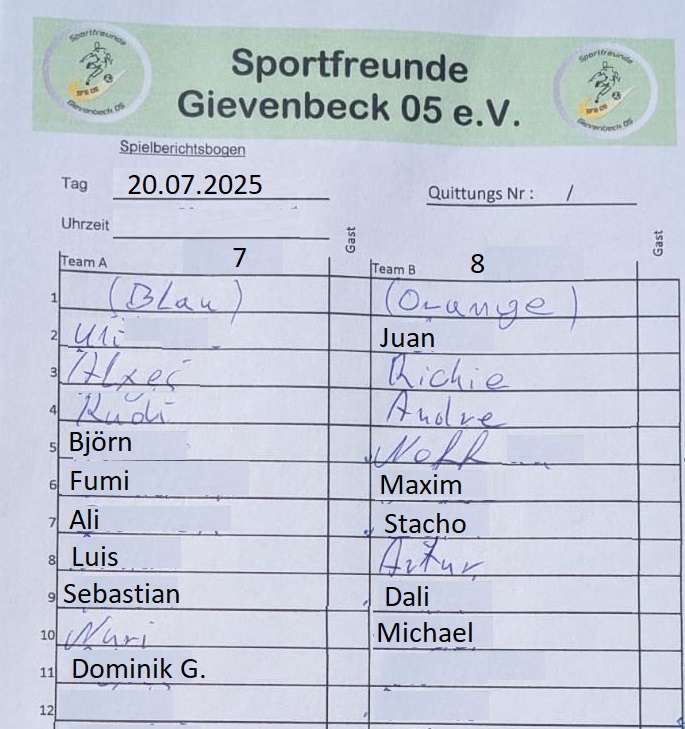 Sportfreunde
SFG 05
Gievenbeck 05
Sportfreunde
Gievenbeck 05 e.V.
Sportfreunde
SFG 05
Gievenbeck 05
Spielberichtsbogen
Tag 20.07.2025 Quittungs Nr : /
Uhrzeit Gast Gast
Team A 7 Team B 8
1 (Blau) (Orange)
2 Uli Juan
3 Richie
4 Rudi Andre
5 Björn
6 Fumi Maxim
7 Ali Stacho
8 Luis Artur
9 Sebastian Dali
10 Nuri Michael
11 Dominik G.
12